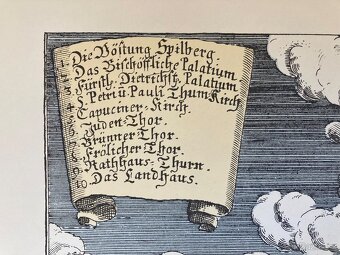 1. Die Vöstung Spilberg.
2. Das Bischöffliche Palatium.
3. Fürstl. Dietrichst. Palatium
4. S. Petri ũ Pauli Thum Kirch
5. Capuciner-Kirch.
6. Juden-Thor.
7. Brünner Thor.
8. Frölicher Thor.
9. Rathhaus-Thurn.
10. Das Landhaus.